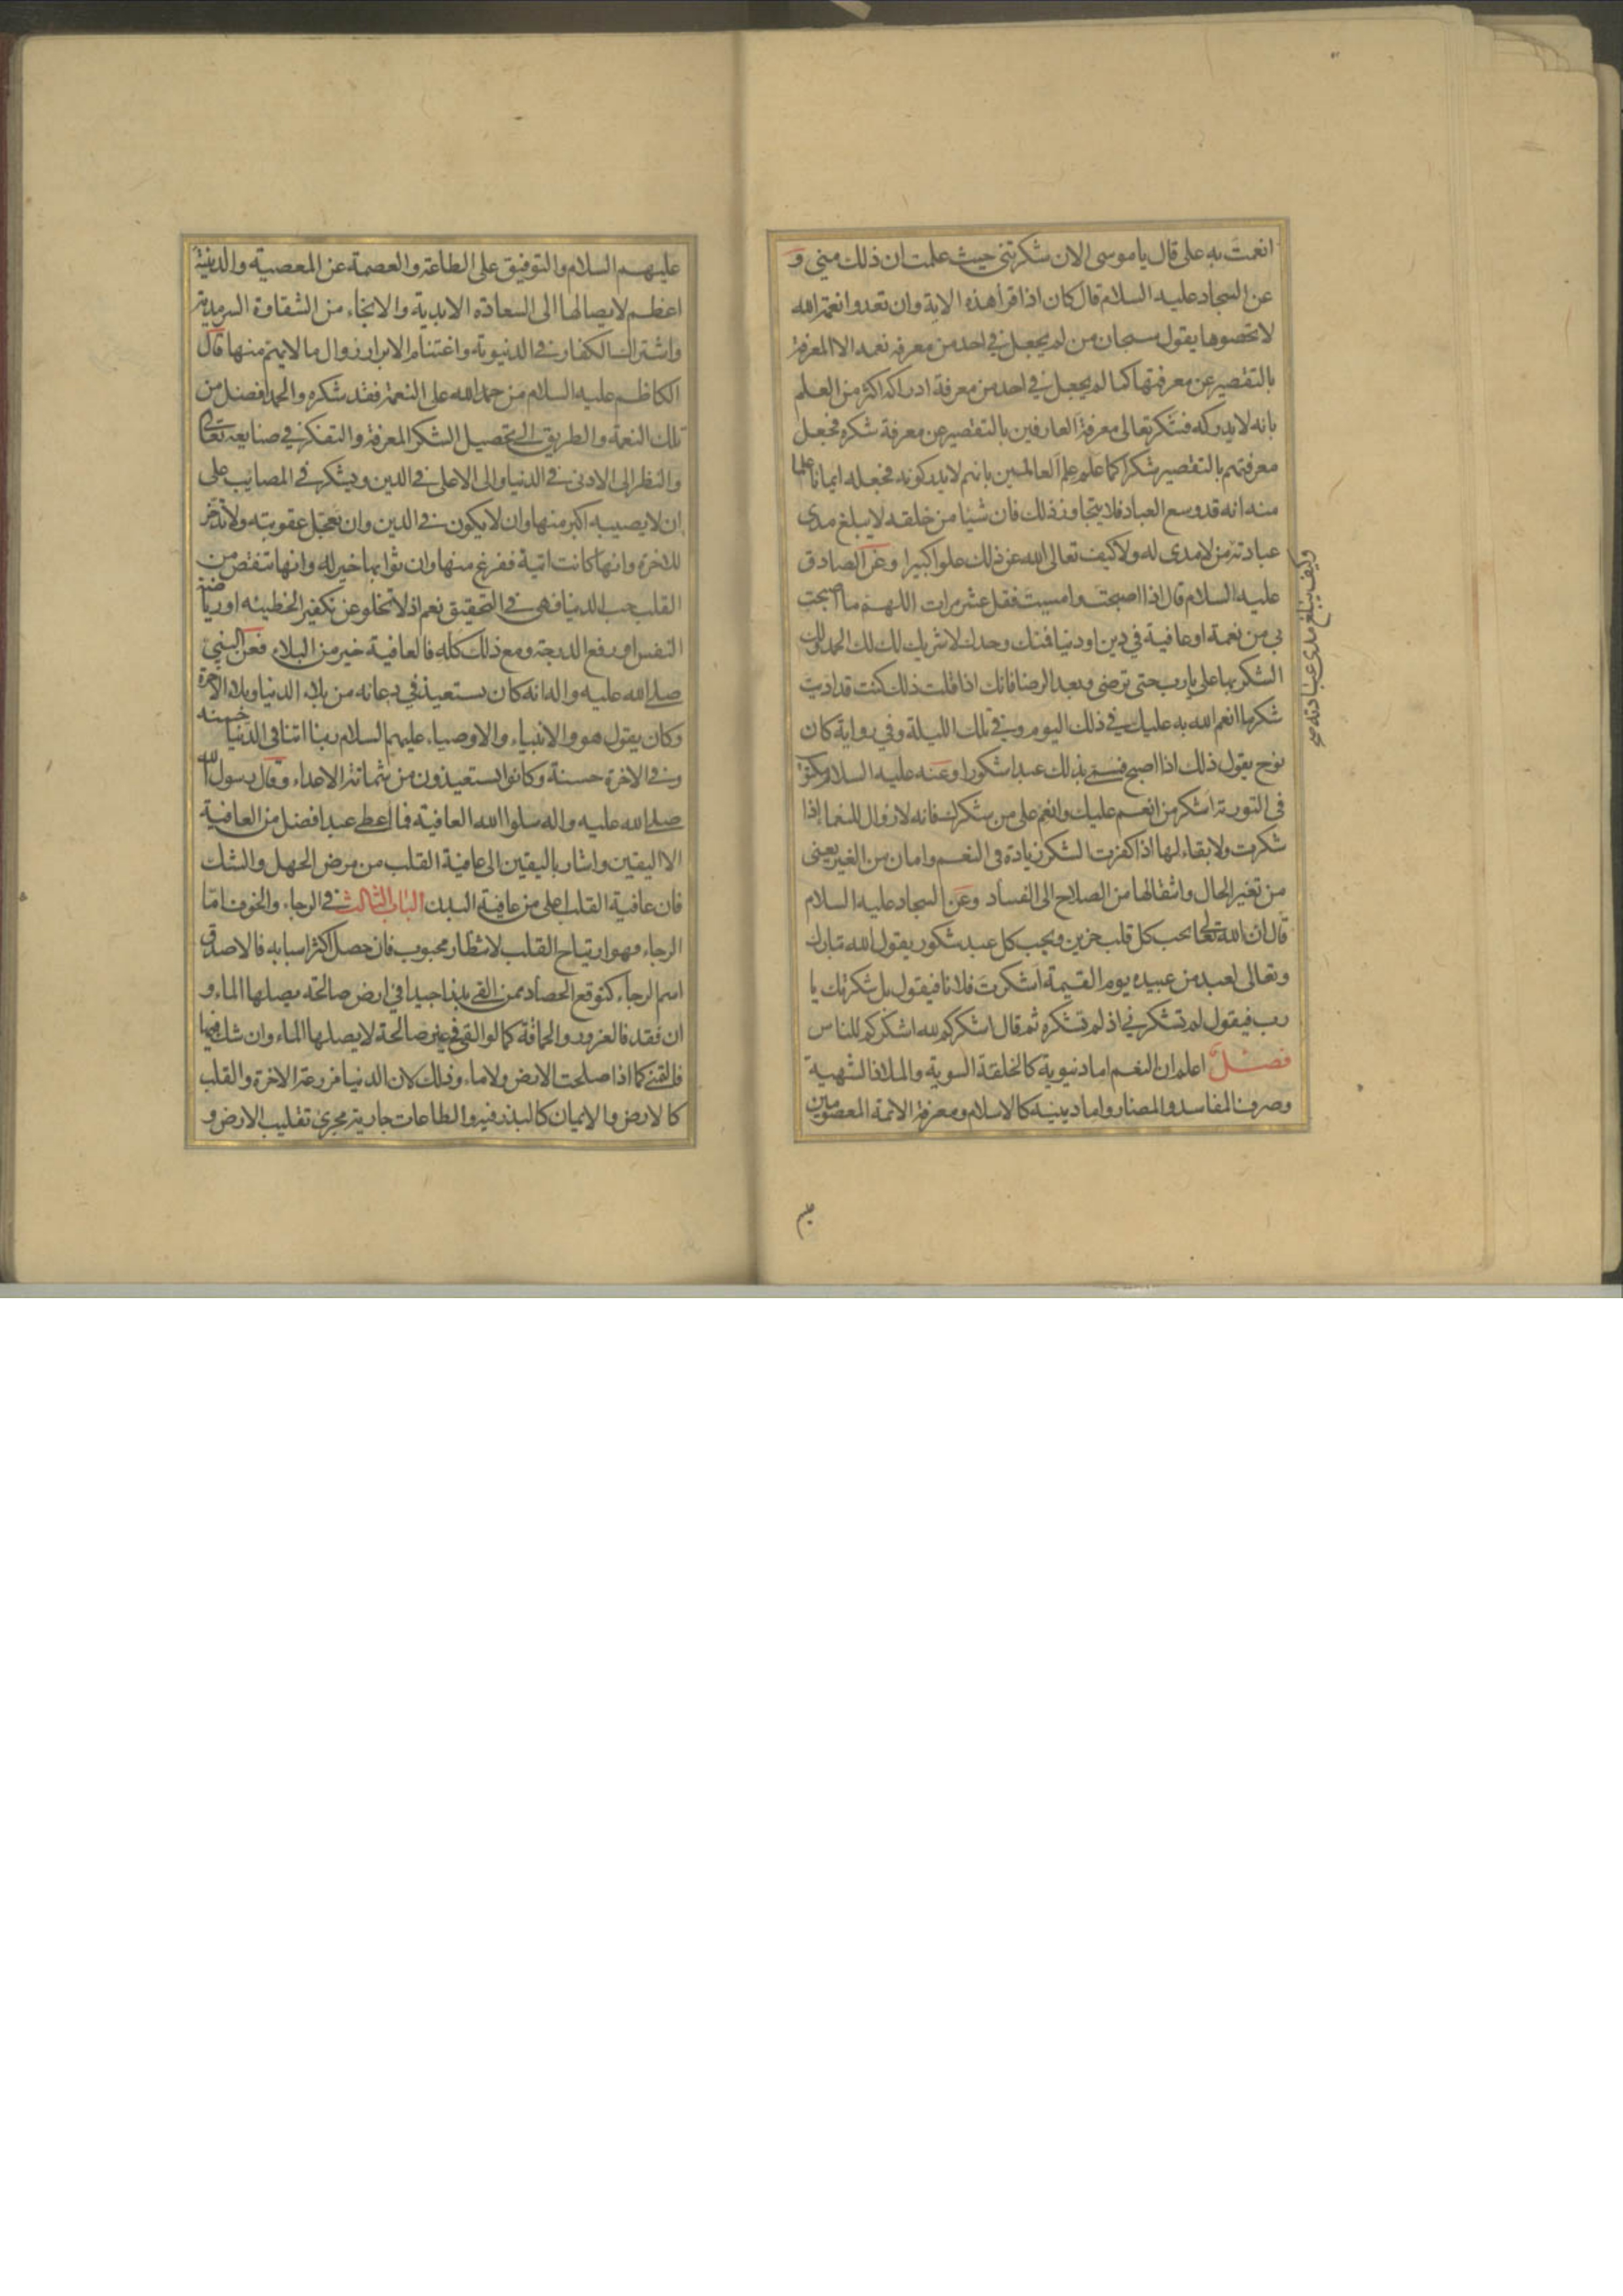 انعمت به على قال يا موسى الان شكرتنى حيث علمت ان ذلك منى و
عن السجاد عليه السلام قال كان اذا قرأ هذه الاية وان تعدوا نعمة الله
لا تحصوها يقول سبحان من لم يجعل فى احد من معرفة نعمه الا المعرفة
بالتقصير عن معرفتها كما لم يجعل فى احد من معرفة ادراكه اكثر من العلم
بانه لا يدركه فشكر تعالى معرفة العارفين بالتقصير عن معرفة شكره فجعل
معرفتهم بالتقصير شكرا كما علم علم العالمين بانهم لا يدركونه فجعله ايمانا علما
منه انه قد وسع العباد فلا يتجاوز ذلك فان شيئا من خلقه لا يبلغ مدى
عبادته من لا مدى له ولا كيف تعالى الله عن ذلك علوا كبيرا وعن الصادق
وكيف يبلغ مدى عبادته صح
عليه السلام قال اذا اصبحت وامسيت فقل عشر مرات اللهم ما اصبحت
بى من نعمة او عافية فى دين او دنيا فمنك وحدك لا شريك لك لك الحمد ولك
الشكر بها على يا رب حتى ترضى وبعد الرضا فانك اذا قلت ذلك كنت قد اديت
شكر ما انعم الله به عليك فى ذلك اليوم وفى تلك الليلة وفى رواية كان
نوح يقول ذلك اذا اصبح فسمى بذلك عبدا شكورا وعنه عليه السلام مكتوب
فى التورية اشكر من انعم عليك وانعم على من شكرك فانه لا زوال للنعما اذا
شكرت ولا بقاء لها اذا كفرت الشكر زيادة فى النعم وامان من الغير يعنى
من تغير الحال وانتقالها من الصلاح الى الفساد وعن السجاد عليه السلام
قال ان الله تعالى يحب كل قلب حزين ويحب كل عبد شكور يقول الله تبارك
وتعالى لعبد من عبيده يوم القيمة اشكرت فلانا فيقول بل شكرتك يا
رب فيقول لم تشكرنى اذ لم تشكره ثم قال اشكركم لله اشكركم للناس
فصل اعلم ان النعم اما دنيوية كالخلقة السوية والملاذ الشهية
وصرف المفاسد والمضار واما دينيه كالاسلام ومعرفة الائمة المعصومين
عليهم
عليهم السلام والتوفيق على الطاعة والعصمة عن المعصية والدينية
اعظم لايصالها الى السعادة الابدية والانجاء من الشقاوة السرمدية
واشتراك الكفار فى الدنيوية واغتنام الابرار زوال ما لا يهم منها قال
الكاظم عليه السلام من حمد الله على النعمة فقد شكره والحمد افضل من
تلك النعمة والطريق الى تحصيل الشكر المعرفة والتفكر فى صنايعه تعالى
والنظر الى الادنى فى الدنيا والى الاعلى فى الدين ويشكر فى المصائب على
ان لا يصيبه اكبر منها وان لا يكون فى الدين وان تعجل عقوبته ولا تدخر
للاخرة وانها كانت اتية ففرغ منها وان ثوابها خير له وانها تنقص من
القلب حب الدنيا فهى فى التحقيق نعم اذ لا تخلو عن تكفير الخطيئه او رياضة
النفس او رفع الدرجة ومع ذلك كله فالعافية خير من البلاء فعن النبى
صلى الله عليه واله انه كان يستعيذ فى دعائه من بلاء الدنيا وبلاء الاخرة
وكان يقول هو والانبياء والاوصياء عليهم السلام ربنا اتنا فى الدنيا حسنه
وفى الاخرة حسنة وكانوا يستعيذون من شماتة الاعداء وقال رسول الله
صلى الله عليه واله سلوا الله العافية فما اعطى عبد افضل من العافية
الا اليقين واشار باليقين الى عافية القلب من مرض الجهل والشك
فان عافية القلب اعلى من عافية البدن الباب الثالث فى الرجاء والخوف اما
الرجاء فهو ارتياح القلب لانتظار محبوب فان حصل اكثر اسبابه فالاصدق
اسم الرجاء كتوقع الحصاد ممن القى بذرا جيدا فى ارض صالحة يصلها الماء و
ان فقد فالغرور والحماقة كما لو القى فى غير صالحة لا يصلها الماء وان شك فيها
فالتمنى كما اذا صلحت الارض ولا ماء وذلك لان الدنيا مزرعة الاخرة والقلب
كالارض والايمان كالبذر فيه والطاعات جارية مجرى تقليب الارض و